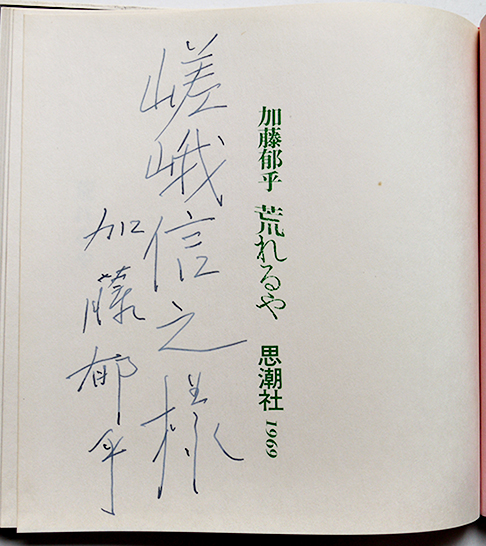 加藤郁乎 荒れるや 思潮社 1969
嵯峨信之様
加藤郁乎